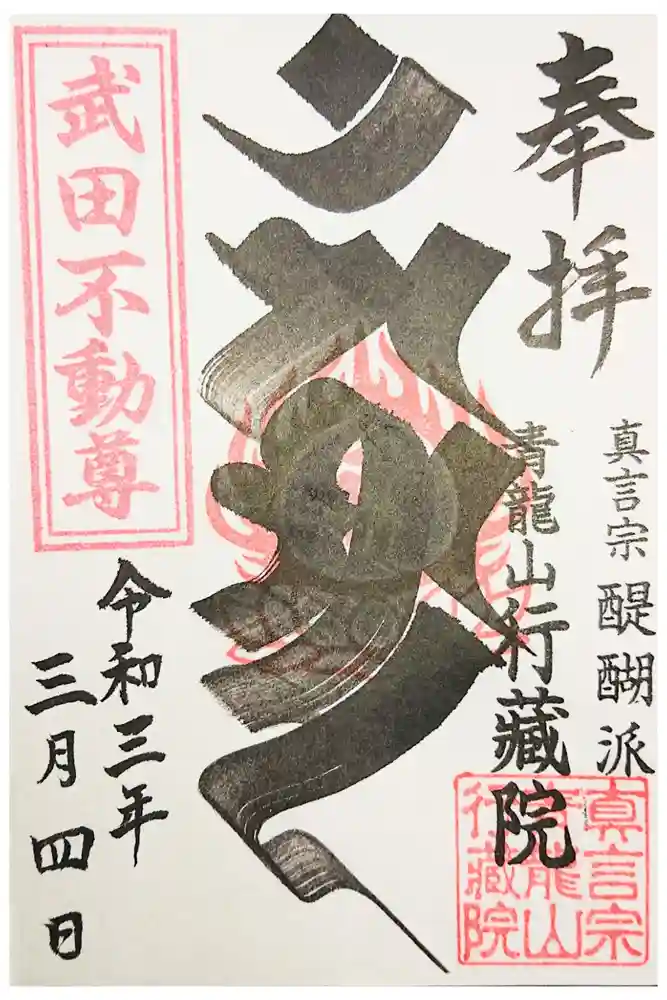 奉拝
真言宗 醍醐派
青龍山行藏院
武田不動尊
令和三年
三月四日
真言宗
青龍山
行藏院